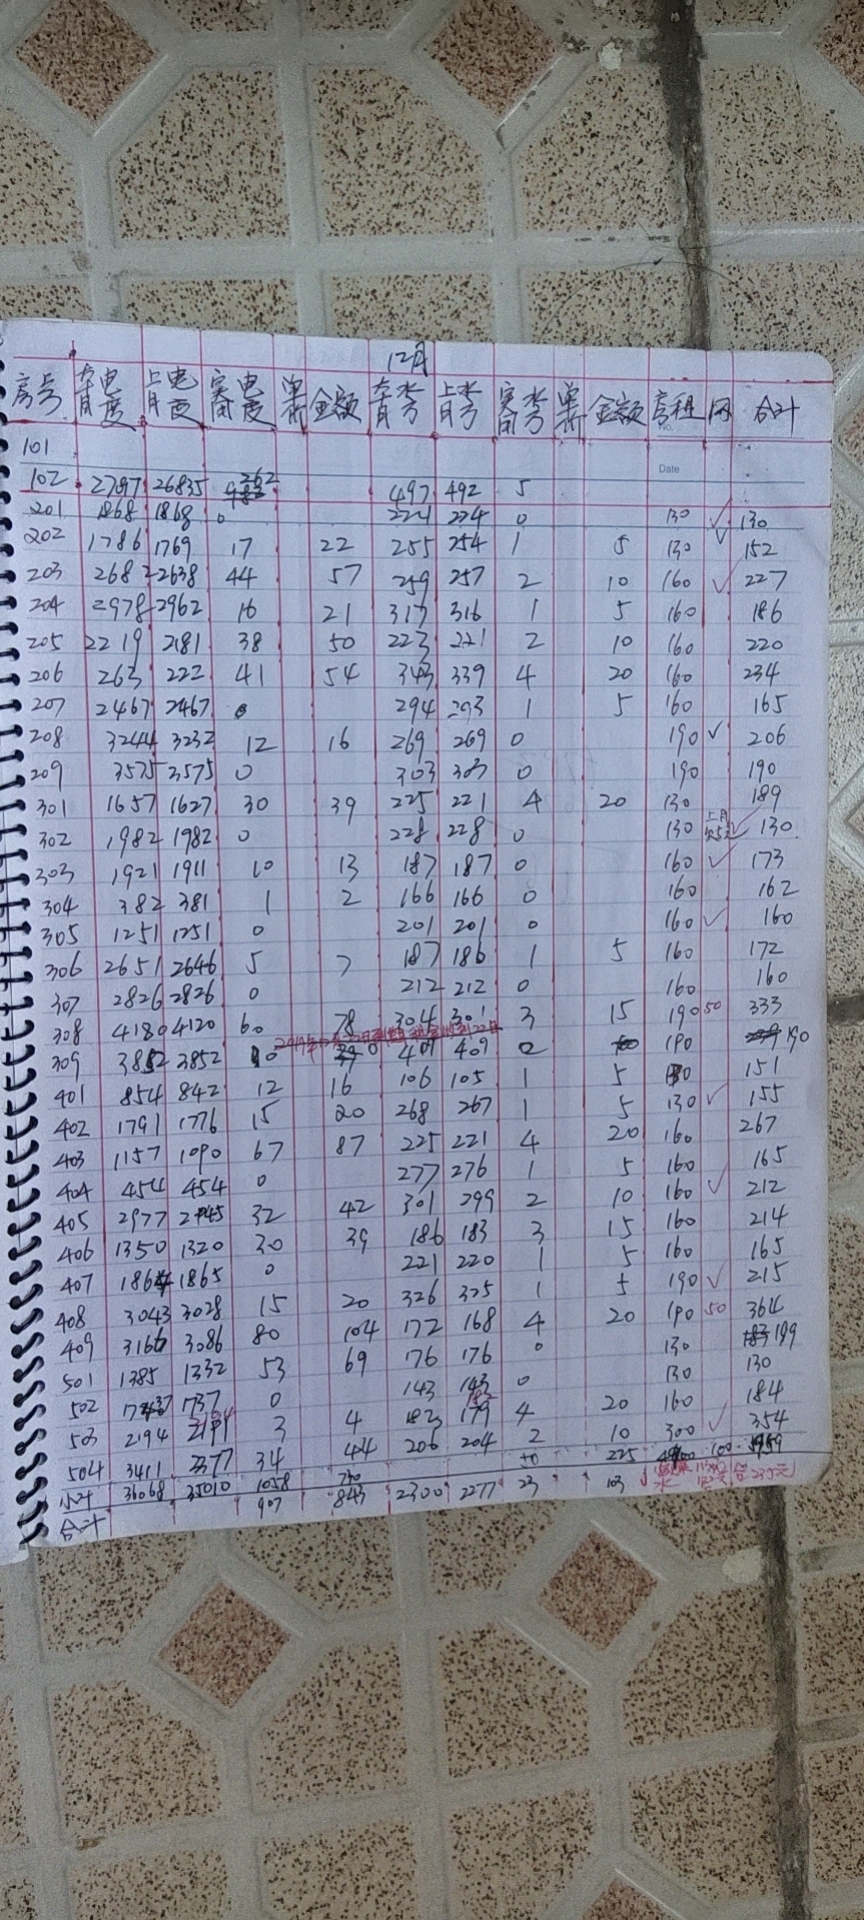 12月
房号 本月电度 上月电度 实用电度 单价 金额 本月水号 上月水号 实用水号 单价 金额 房租 网 合计
No.
Date
101
102 2797 26835 262 497 492 5
201 1868 1868 0 224 224 0 130 ✓ 130
202 1786 1769 17 22 255 254 1 5 130 ✓ 152
203 2682 2638 44 57 259 257 2 10 160 ✓ 227
204 2978 2962 16 21 317 316 1 5 160 186
205 2219 2181 38 50 223 221 2 10 160 220
206 263 222 41 54 343 339 4 20 160 234
207 2467 2467 0 294 293 1 5 160 165
208 3244 3232 12 16 269 269 0 190 ✓ 206
209 3575 3575 0 303 303 0 190 190
301 1657 1627 30 39 225 221 4 20 130 189
302 1982 1982 0 228 228 0 130 上月欠5元 ✓ 130
303 1921 1911 10 13 187 187 0 160 ✓ 173
304 382 381 1 2 166 166 0 160 162
305 1251 1251 0 201 201 0 160 ✓ 160
306 2651 2646 5 7 187 186 1 5 160 172
307 2826 2826 0 212 212 0 160 160
308 4180 4120 60 78 304 301 3 15 190 50 333
309 3852 3852 0 0 409 409 0 190 190
401 854 842 12 16 106 105 1 5 130 151
402 1791 1776 15 20 268 267 1 5 130 ✓ 155
403 1157 1090 67 87 225 221 4 20 160 267
404 454 454 0 277 276 1 5 160 165
405 2977 2945 32 42 301 299 2 10 160 ✓ 212
406 1350 1320 30 39 186 183 3 15 160 214
407 1864 1865 0 221 220 1 5 160 165
408 3043 3028 15 20 326 325 1 5 190 ✓ 215
409 3166 3086 80 104 172 168 4 20 190 50 364
501 1385 1332 53 69 76 176 0 130 199
502 1737 1737 0 143 143 0 130 130
503 2194 2191 3 4 183 179 4 20 160 184
504 3411 3377 34 44 206 204 2 10 300 ✓ 354
小计 36068 35010 1058 225 100
合计 907 843 2300 2277 23 103